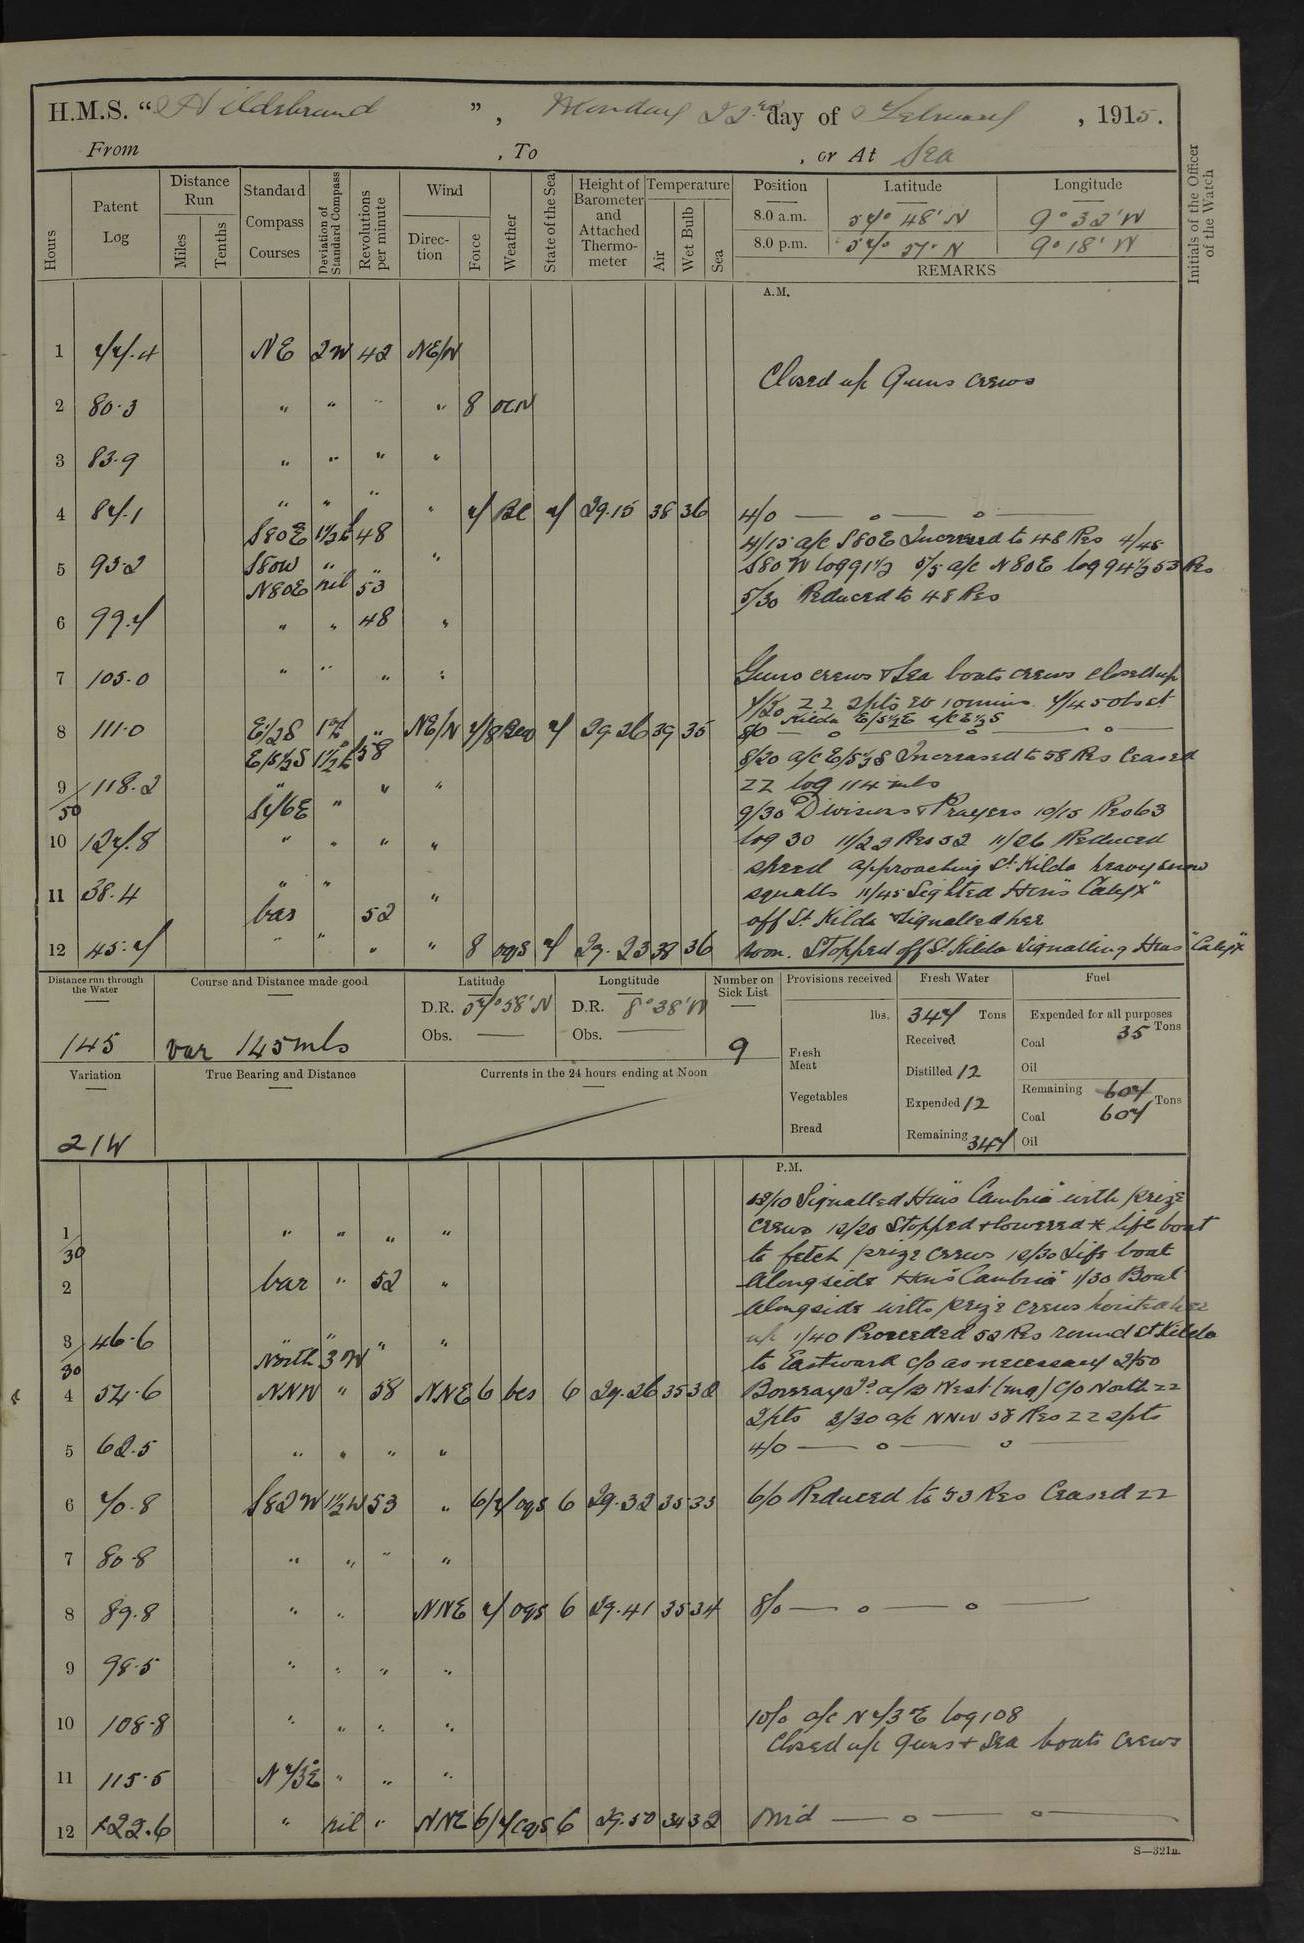 H.M.S. "Hildebrand", Monday 22nd day of February, 1915.
From , To , or At Sea
Hours
Patent Log
Distance Run
Miles
Tenths
Standard Compass Courses
Deviation of Standard Compass
Revolutions per minute
Wind
Direction
Force
Weather
State of the Sea
Height of Barometer and Attached Thermometer
Temperature
Air
Wet Bulb
Sea
Position Latitude Longitude
8.0 a.m. 57° 48' N 9° 32' W
8.0 p.m. 57° 57' N 9° 18' W
REMARKS
Initials of the Officer of the Watch
A.M.
1 77.4 NE 2W 42 NE/N
Closed up Guns crews
2 80.3 " " " " 8 ocN
3 83.9 " " " "
4 87.1 " " " " 7 BC 7 29.15 38 36 4/0 — o — o —
S80E 1½E 48 4/15 a/c S80E Increased to 48 Res 4/45
5 93.2 S80W " " " S80W log 91½ 5/5 a/c N80E log 94½ 53 Res
N80E nil 53 5/30 Reduced to 48 Res
6 99.7 " " 48 "
7 105.0 " " " " Guns crews & Sea boats crews closed up
7/20 ZZ 2pts ev 10 mins. 7/45 obs St
Kilda E/S½E a/c E½S
8 111.0 E½S " NE/N 7/8 7 29.26 39 35 8/0 — o — o — o —
E/S½S 1½E 58 8/20 a/c E/S½S Increased to 58 Res Ceased
9 118.2 " " " ZZ log 114 mls
50 S76E " 9/30 Divisions & Prayers 10/15 Res 63
10 127.8 " " " " log 30 11/22 Res 52 11/26 Reduced
speed approaching St Kilda heavy snow
11 38.4 " " " squalls 11/45 Sighted Hms "Calyx"
var 52 off St Kilda & signalled her
12 45.7 " " " " 8 oqs 7 29.23 38 36 noon. Stopped off St Kilda signalling Hms "Calyx"
Distance run through the Water
145
Course and Distance made good
var 145 mls
Latitude
D.R. 57° 58' N
Obs. —
Longtitude
D.R. 8° 38' W
Obs. —
Number on Sick List
9
Provisions received
lbs.
Fresh Meat
Vegetables
Bread
Fresh Water
347 Tons
Received
Distilled 12
Expended 12
Remaining 347
Fuel
Expended for all purposes
Coal 35 Tons
Oil
Remaining 607 Tons
Coal 607
Oil
Variation
21W
True Bearing and Distance
Currents in the 24 hours ending at Noon
P.M.
12/10 Signalled Hms "Cambria" with prize
1 " " " " crews 12/20 Stopped & lowered * life boat
30 to fetch prize crews 12/30 Life boat
2 var " 52 " alongside Hms "Cambria" 1/30 Boat
alongside with prize crews hoisted her
3 46.6 " " " " up 1/40 Proceeded 52 Res round St Kilda
30 North 3W to Eastward c/o as necessary 2/50
4 54.6 NNW " 58 NNE 6 bcs 6 29.26 35 32 Boreray Id a/b West (mag) C/o North ZZ
2pts 3/30 a/c NNW 58 Res ZZ 2pts
5 62.5 " " " " 4/0 — o — o —
6 70.8 S82W 1½W 53 " 6/7 oqs 6 29.32 35 33 6/0 Reduced to 53 Res Ceased ZZ
7 80.8 " " " "
8 89.8 " " NNE 7 oqs 6 29.41 35 34 8/0 — o — o —
9 98.5 " " " "
10 108.8 " " " " 10/0 a/c N73E log 108
Closed up guns & Sea boats crews
11 115.5 N73E " " "
12 122.6 " nil " NNE 6/7 cqs 6 29.50 34 32 Mid — o — o —
S—321a.